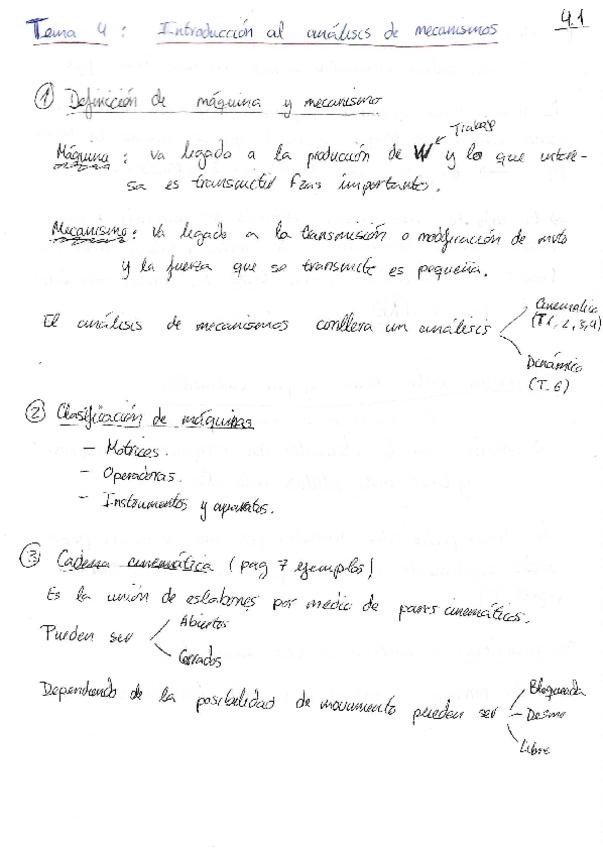 4.1
Tema 4: Introducción al análisis de mecanismos
① Definición de máquina y mecanismo
Trabajo
Máquina: va ligado a la producción de W y lo que intere-
sa es transmitir fzas importantes.
Mecanismo: Va ligado a la transmisión o modificación de mvto
y la fuerza que se transmite es pequeña.
El análisis de mecanismos conlleva un análisis
Cinemático
(T1, 2, 3, 4)
Dinámico
(T. 6)
② Clasificación de máquinas
- Motrices.
- Operadoras.
- Instrumentos y aparatos.
③ Cadena cinemática (pag 7 ejemplos)
Es la unión de eslabones por medio de pares cinemáticos.
Pueden ser
Abiertos
Cerrados
Dependiendo de la posibilidad de movimiento pueden ser
Bloqueada
Desmo
Libre